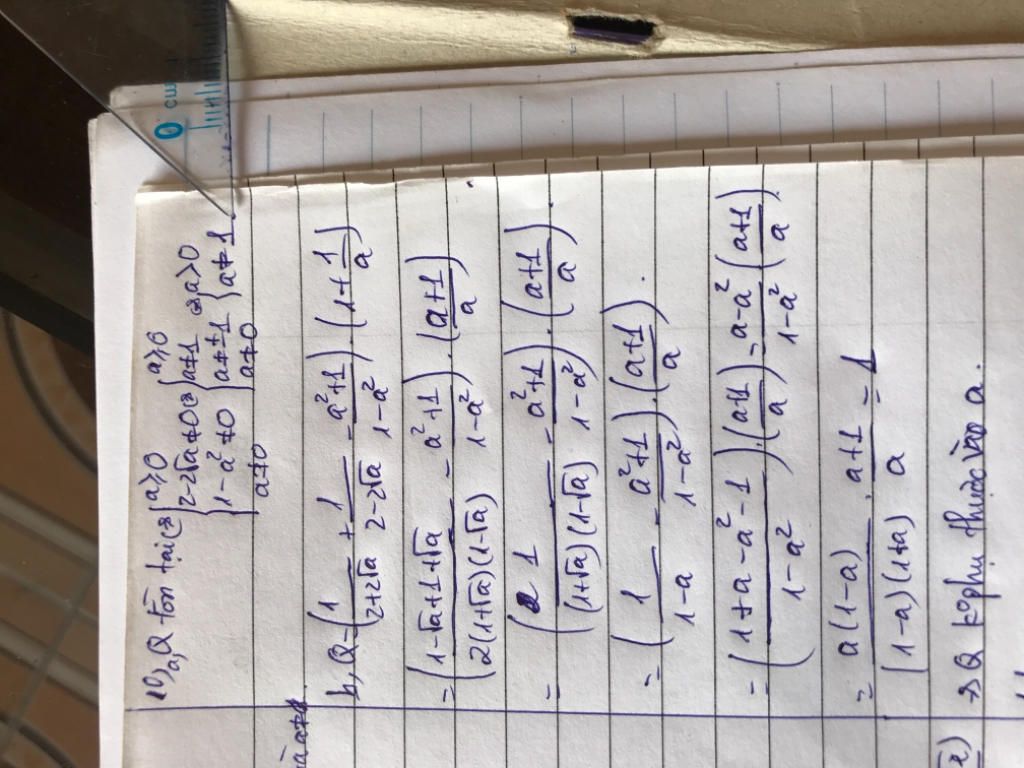 10, a, Q tồn tại ⇔ { a ≥ 0 ; 2-2√a ≠ 0 ; 1-a² ≠ 0 ; a ≠ 0 ⇔ { a ≥ 0 ; a ≠ 1 ; a ≠ -1 ; a ≠ 0 ⇔ { a > 0 ; a ≠ 1.
b, Q = (1/(2+2√a) + 1/(2-2√a) - (a²+1)/(1-a²)) . (1 + 1/a)
= ((1-√a+1+√a)/(2(1+√a)(1-√a)) - (a²+1)/(1-a²)) . ((a+1)/a) .
= (1/((1+√a)(1-√a)) - (a²+1)/(1-a²)) . ((a+1)/a) .
= (1/(1-a) - (a²+1)/(1-a²)) . ((a+1)/a) .
= ((1+a-a²-1)/(1-a²)) . ((a+1)/a) = (a-a²)/(1-a²) ((a+1)/a) .
= a(1-a)/((1-a)(1+a)) . (a+1)/a = 1
→ Q ko phụ thuộc vào a.
0 cm